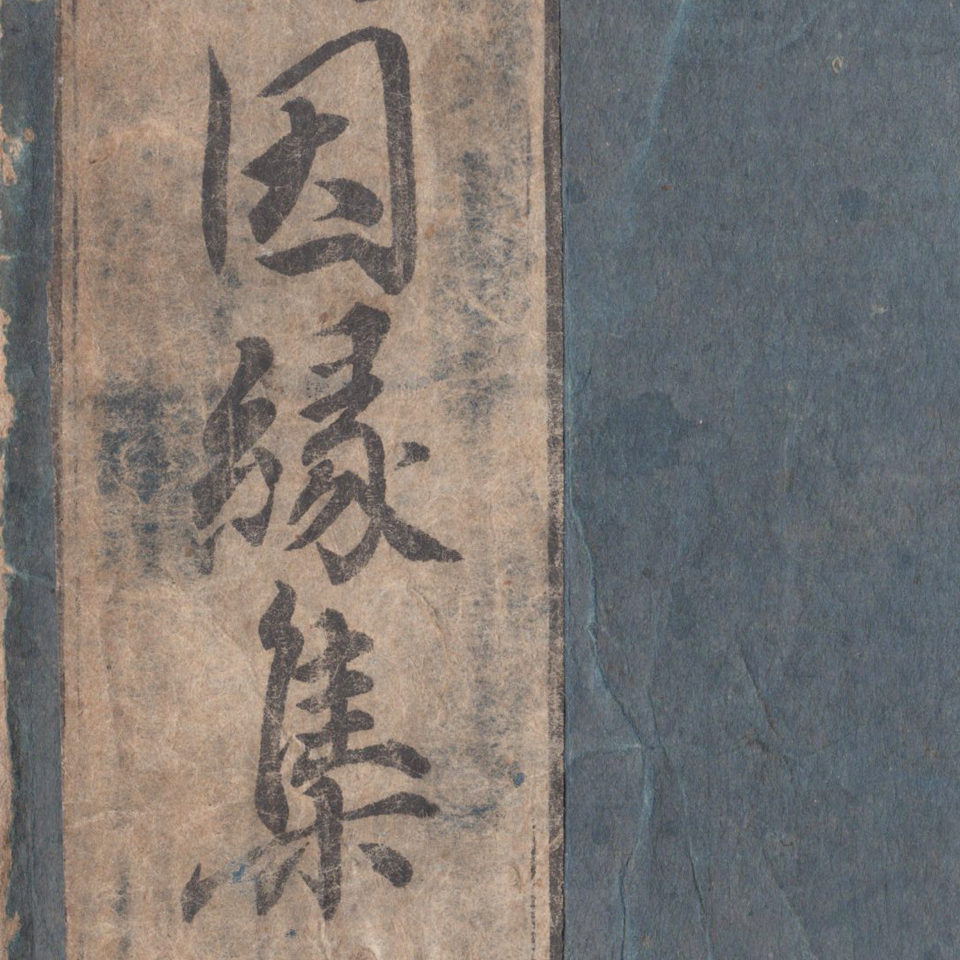 因縁集